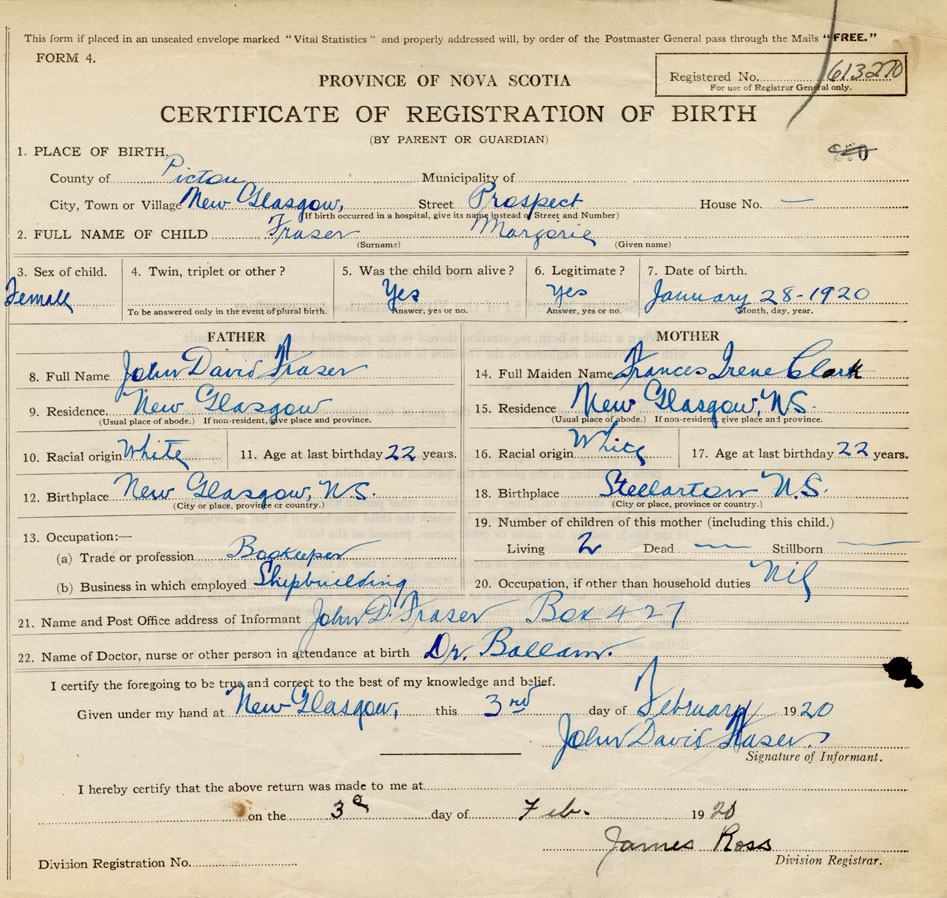 This form if placed in an unsealed envelope marked "Vital Statistics" and properly addressed will, by order of the Postmaster General pass through the Mails "FREE."
FORM 4.
PROVINCE OF NOVA SCOTIA
Registered No. 613270
For use of Registrar General only.
CERTIFICATE OF REGISTRATION OF BIRTH
(BY PARENT OR GUARDIAN)
1. PLACE OF BIRTH.
County of Pictou Municipality of
City, Town or Village New Glasgow, Street Prospect House No. —
(If birth occurred in a hospital, give its name instead of Street and Number)
2. FULL NAME OF CHILD Fraser Marjorie
(Surname) (Given name)
3. Sex of child. 4. Twin, triplet or other? 5. Was the child born alive? 6. Legitimate? 7. Date of birth.
Female Yes Yes January 28-1920
To be answered only in the event of plural birth. Answer, yes or no. Answer, yes or no. Month, day, year.
FATHER MOTHER
8. Full Name John David Fraser 14. Full Maiden Name Frances Irene Clark
9. Residence. New Glasgow 15. Residence New Glasgow, NS.
(Usual place of abode.) If non-resident, give place and province. (Usual place of abode.) If non-resident, give place and province.
10. Racial origin White 11. Age at last birthday 22 years. 16. Racial origin White 17. Age at last birthday 22 years.
12. Birthplace New Glasgow, N.S. 18. Birthplace Stellarton N.S.
(City or place, province or country.) (City or place, province or country.)
13. Occupation:— 19. Number of children of this mother (including this child.)
(a) Trade or profession Bookeeper Living 2 Dead — Stillborn —
(b) Business in which employed Shipbuilding 20. Occupation, if other than household duties Nil
21. Name and Post Office address of Informant John D. Fraser Box 427
22. Name of Doctor, nurse or other person in attendance at birth Dr. Ballam.
I certify the foregoing to be true and correct to the best of my knowledge and belief.
Given under my hand at New Glasgow, this 3rd day of February 1920
John David Fraser.
Signature of Informant.
I hereby certify that the above return was made to me at
on the 3d day of Feb. 1920
James Ross
Division Registration No. Division Registrar.